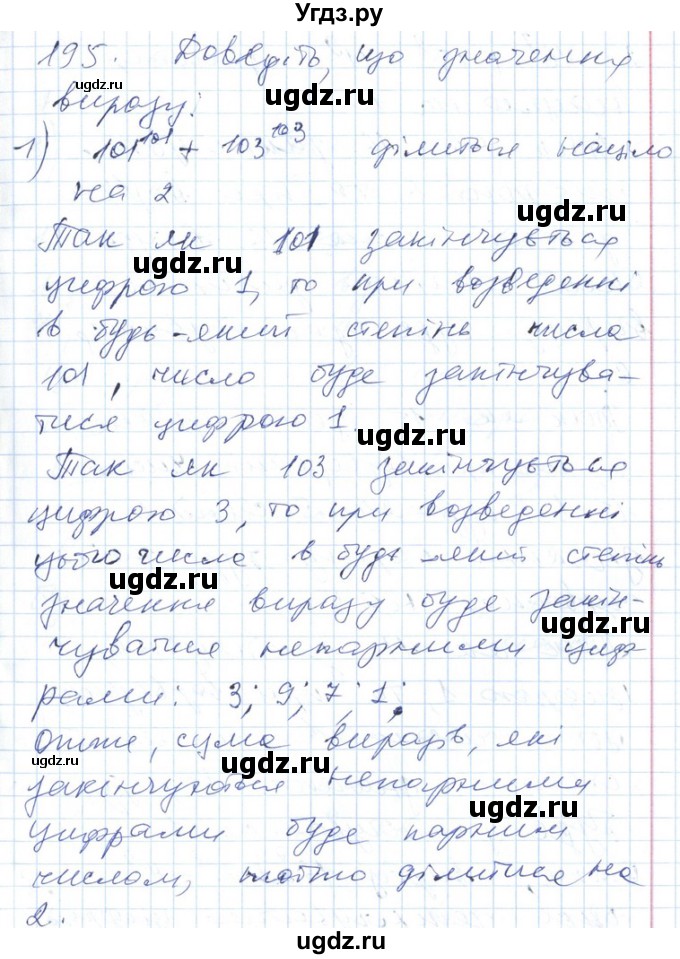 Угдз.ру
195. Доведіть, що значення
ugdz.ru
ugdz.ru
виразу:
1) 101¹⁰¹ + 103¹⁰³ ділиться націло
ugdz.ru
ugdz.ru
на 2
Так як 101 закінчується
ugdz.ru
цифрою 1, то при возведенні
в будь-який степінь числа
101, число буде закінчува-
ugdz.ru
тися цифрою 1.
ugdz.ru
Так як 103 закінчується
цифрою 3, то при возведенні
цього числа в будь-який степінь
ugdz.ru
значення виразу буде закін-
ugdz.ru
чуватися непарними циф-
рами: 3; 9; 7; 1;
отже, сума виразів, які
ugdz.ru
закінчуються непарними
ugdz.ru
цифрами буде парним
числом, тобто ділиться на
2.
ugdz.ru